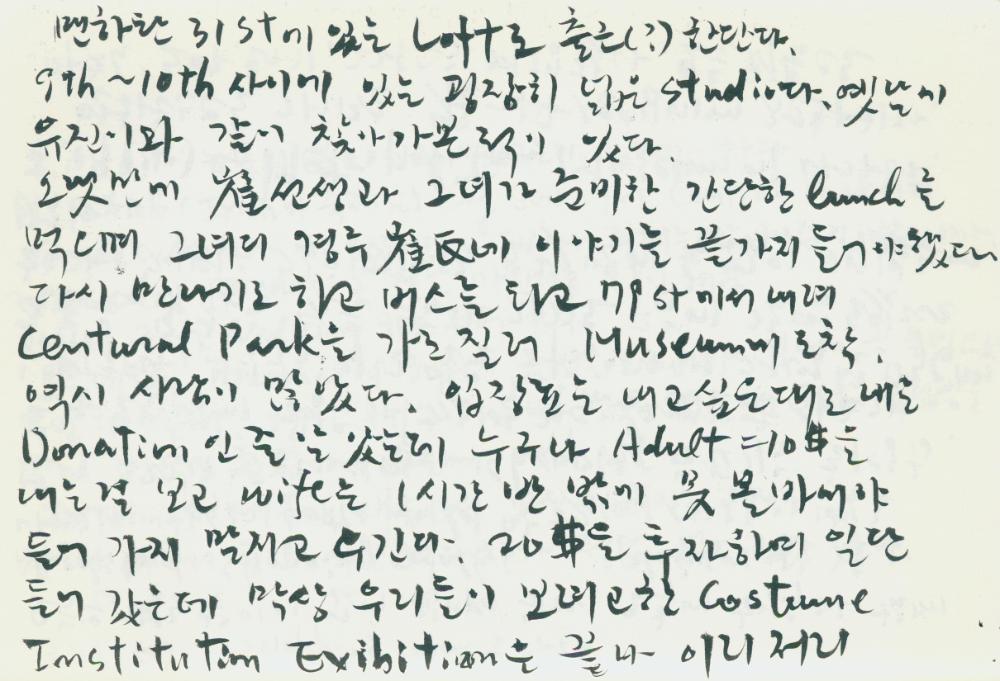 맨하탄 31st에 있는 Loft로 출근(?) 한단다.
9th ~10th 사이에 있는 굉장히 넓은 studio다. 옛날에
유진이와 같이 찾아가본 적이 있다.
오랫만에 崔선생과 그녀가 준비한 간단한 lunch를
먹으며 그녀의 경주 崔氏네 이야기를 끝가지 들어야했다.
다시 만나기로 하고 버스를 타고 79 st에서 내려
Centural Park을 가로 질러 Museum에 도착.
역시 사람이 많았다. 입장료는 내고싶은대로 내는
Donation 인 줄 알았는데 누구나 Adult =10$를
내는걸 보고 wife는 1시간 반 밖에 못 볼바에야
들어 가지 말자고 우긴다. 20$를 투자하며 일단
들어 갔는데 막상 우리들이 보려고한 Costume
Institution Exibition은 끝나 이리 저리